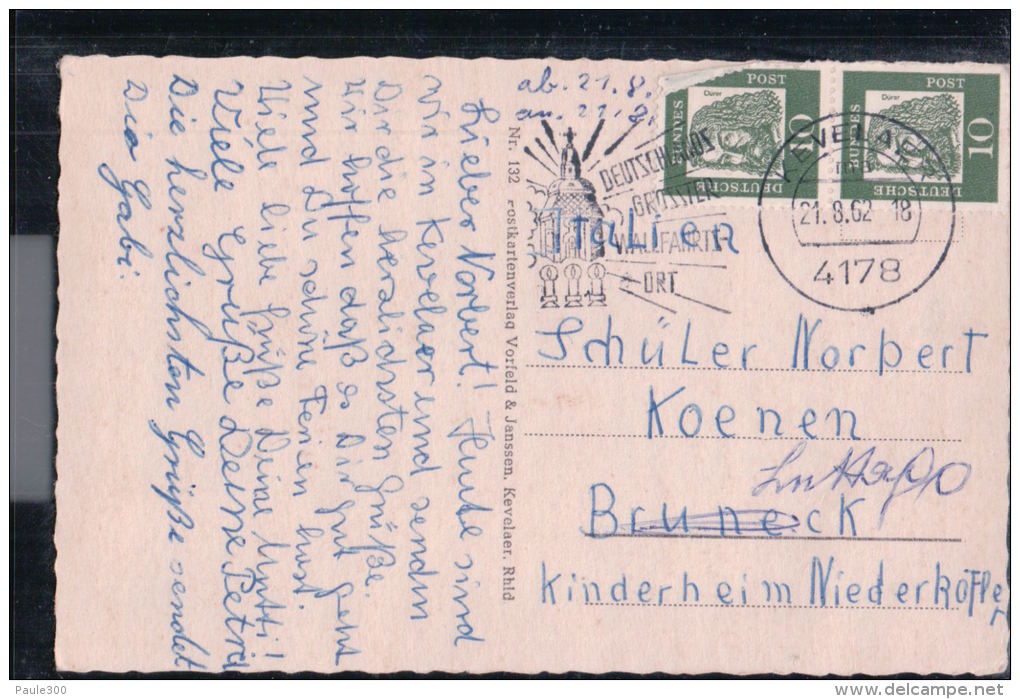 Lieber Norbert! Heute sind
wir in Kevelaer und senden
Dir die herzlichsten Grüße.
Wir hoffen daß es Dir gut geht
und Du schöne Ferien hast.
Viele liebe Grüße Deine Mutti!
Viele Grüße Deine Petra
Die herzlichsten Grüße sendet
Dia Gabi.
Nr. 132 Postkartenverlag Vorfeld & Janssen, Kevelaer, Rhld
ab. 21.8.
an. 21.8.
DEUTSCHLANDS
GRÖSSTER
WALLFAHRTS
ORT
KEVELAER
21.8.62-18
4178
Dürer
10
DEUTSCHE
BUNDES
POST
Dürer
10
DEUTSCHE
BUNDES
POST
Italien
Schüler Norbert
Koenen
Luttago
Bruneck
Kinderheim Niederkofler
Paule300